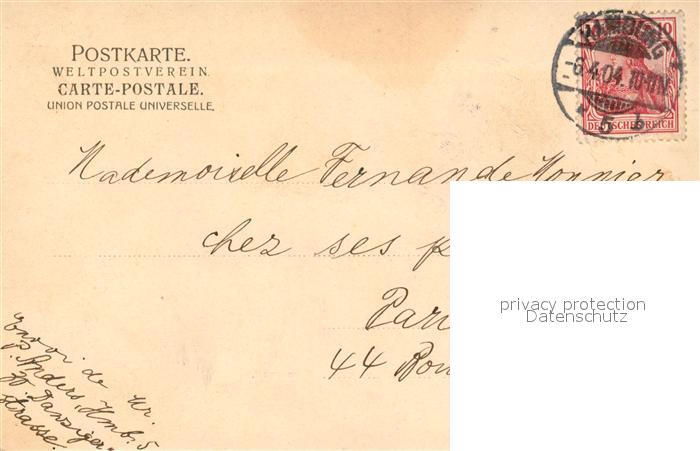 POSTKARTE.
WELTPOSTVEREIN.
CARTE-POSTALE.
UNION POSTALE UNIVERSELLE.
HAMBURG
-6.4.04. 10-11N
5 b
10
DEUTSCHES REICH
Mademoiselle Fernande Monnier
chez ses p
Par
44 Bou
Envoi de
P. Anders, Hmb. 5
Danziger-
strasse
privacy protection
Datenschutz